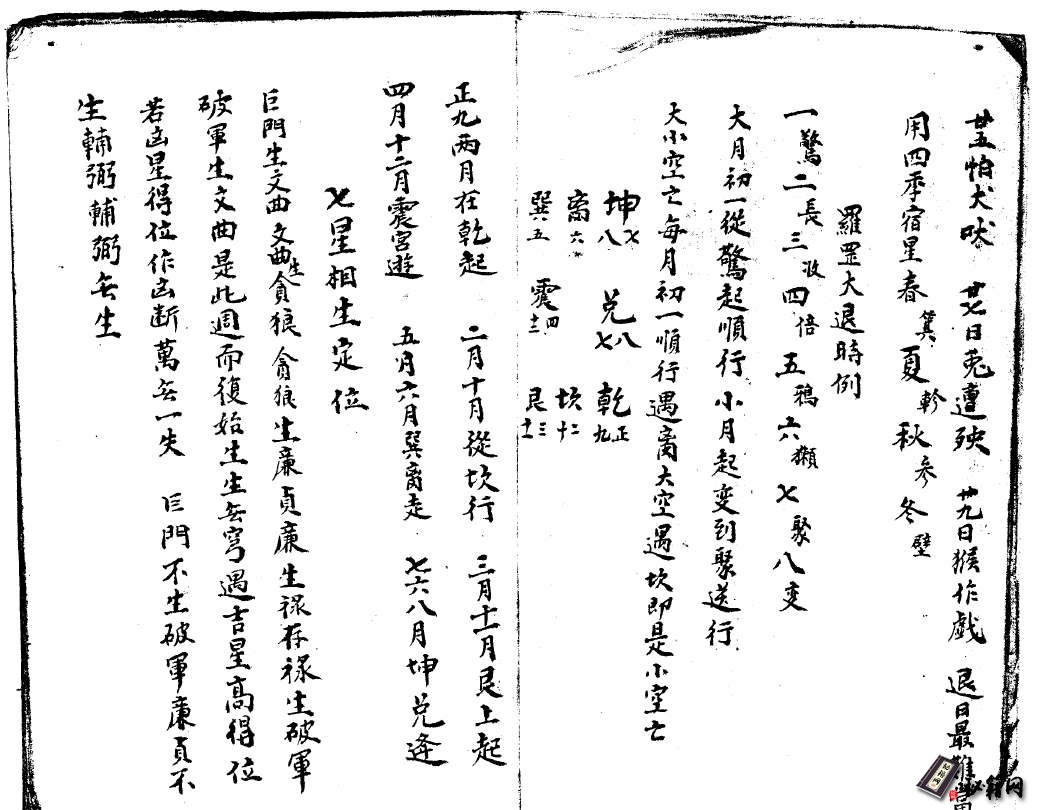 廿五怕犬吠 廿七日兎遭殃 廿九日猴作戯 退日最難當
用四季宿星春箕夏軫秋参冬壁
羅罡大退時例
一驚二長三收四倍五鴉六獺七聚八変
大月初一從驚起順行小月起変到聚送行
大小空亡每月初一順行遇离大空遇坎即是小空亡
坤七八 兑八七 乾正九
离六 坎二十
巽五 震四十二 艮三十一
正九两月在乾起 二月十月從坎行 三月十一月艮上起
四月十二月震宮遊 五月六月巽离走 七六八月坤兑逢
七星相生定位
巨門生文曲文曲生貪狼貪狼生廉貞廉生禄存禄生破軍
破軍生文曲是此週而復始生生無穹遇吉星高得位
若凶星得位作凶断萬無一失 巨門不生破軍廉貞不
生輔弼輔弼無生
秘籍网